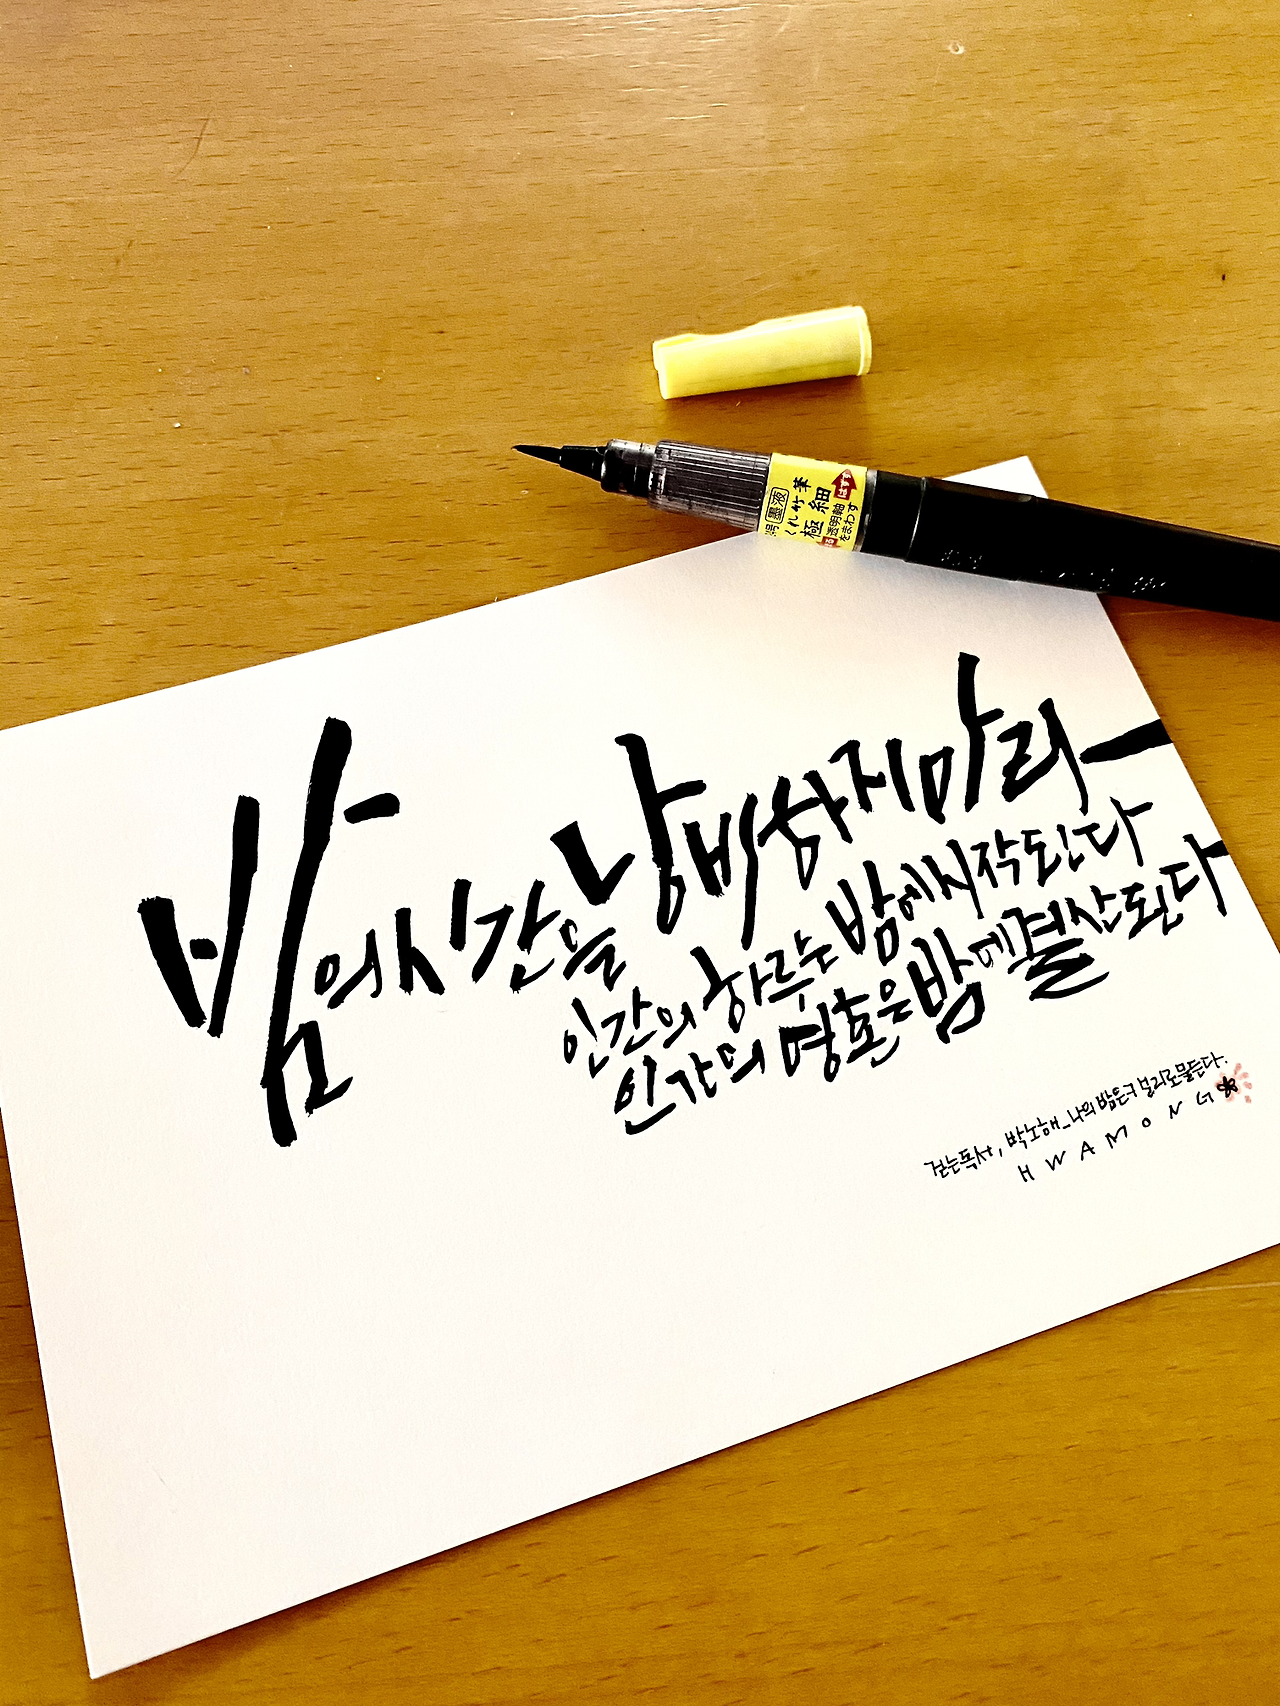 墨液
くれ竹筆
極細
透明軸
をまわす
はずす
밤의 시간을 낭비하지 마라
인간의 하루는 밤에 시작된다
인간의 영혼은 밤에 결산된다
걷는독서, 박노해_나의 밤은
물든다.
HWAMONG